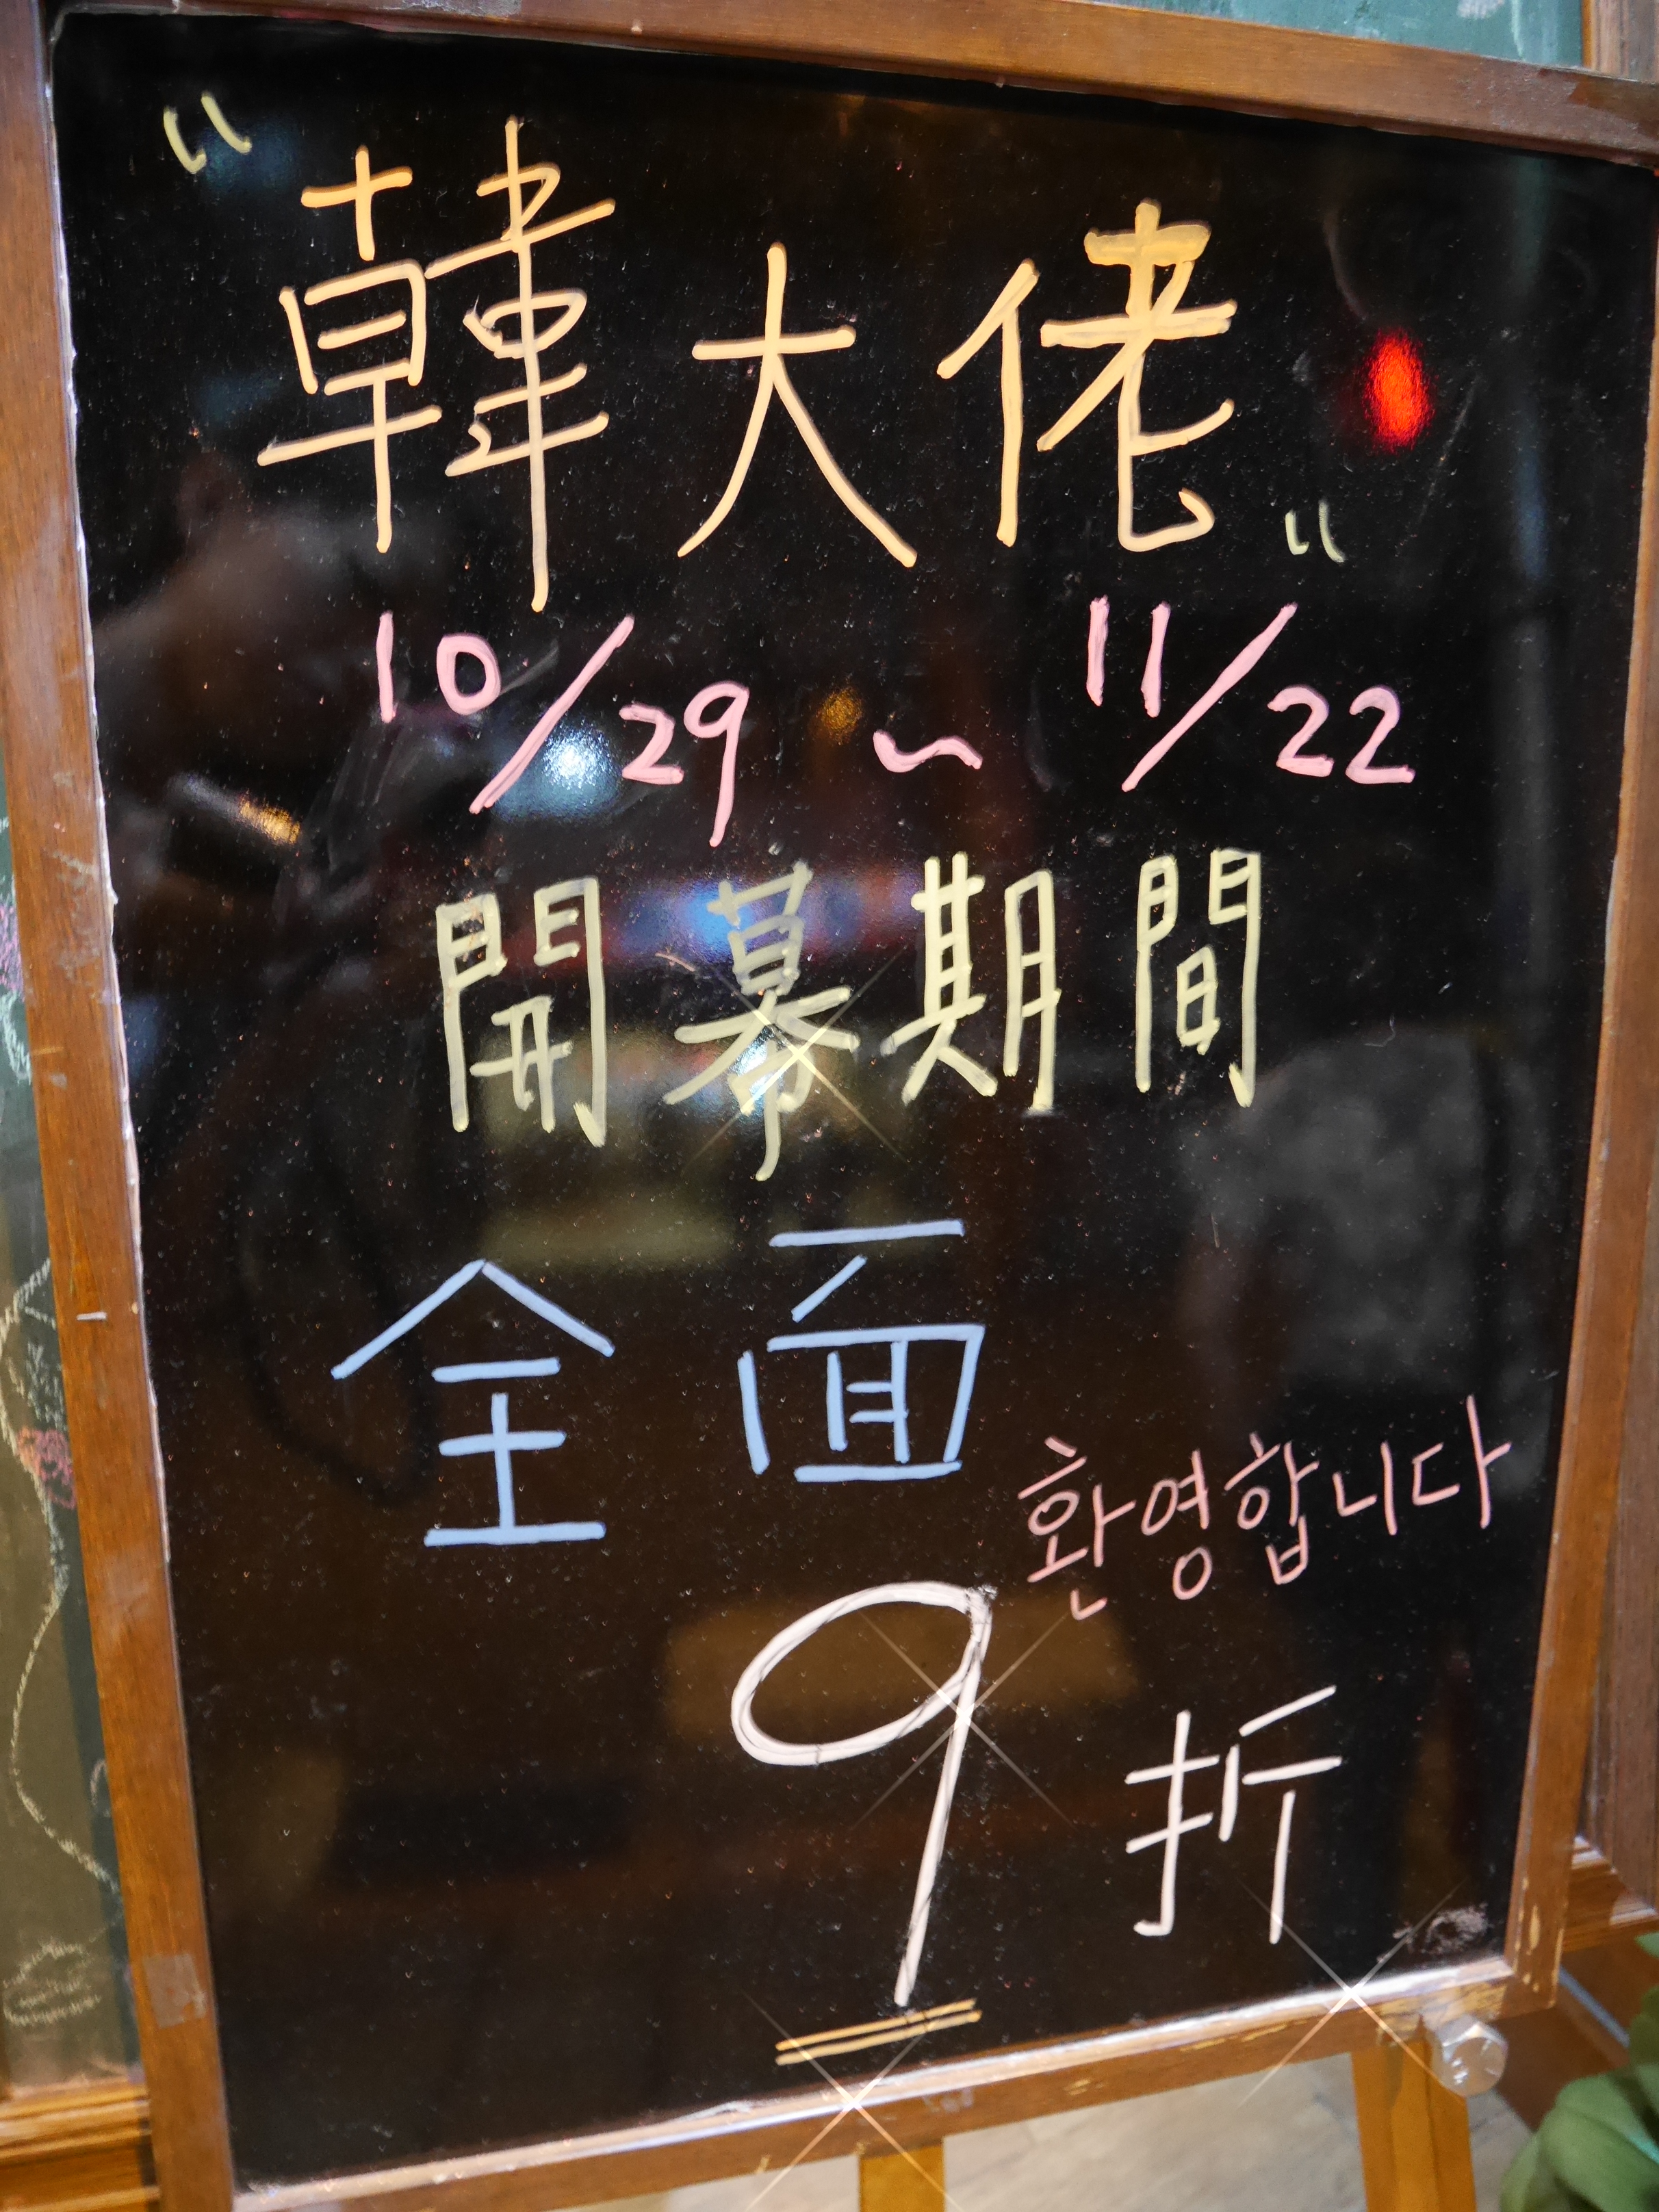 "韓大佬"
10/29 ~ 11/22
開幕期間
全面
환영합니다
9折